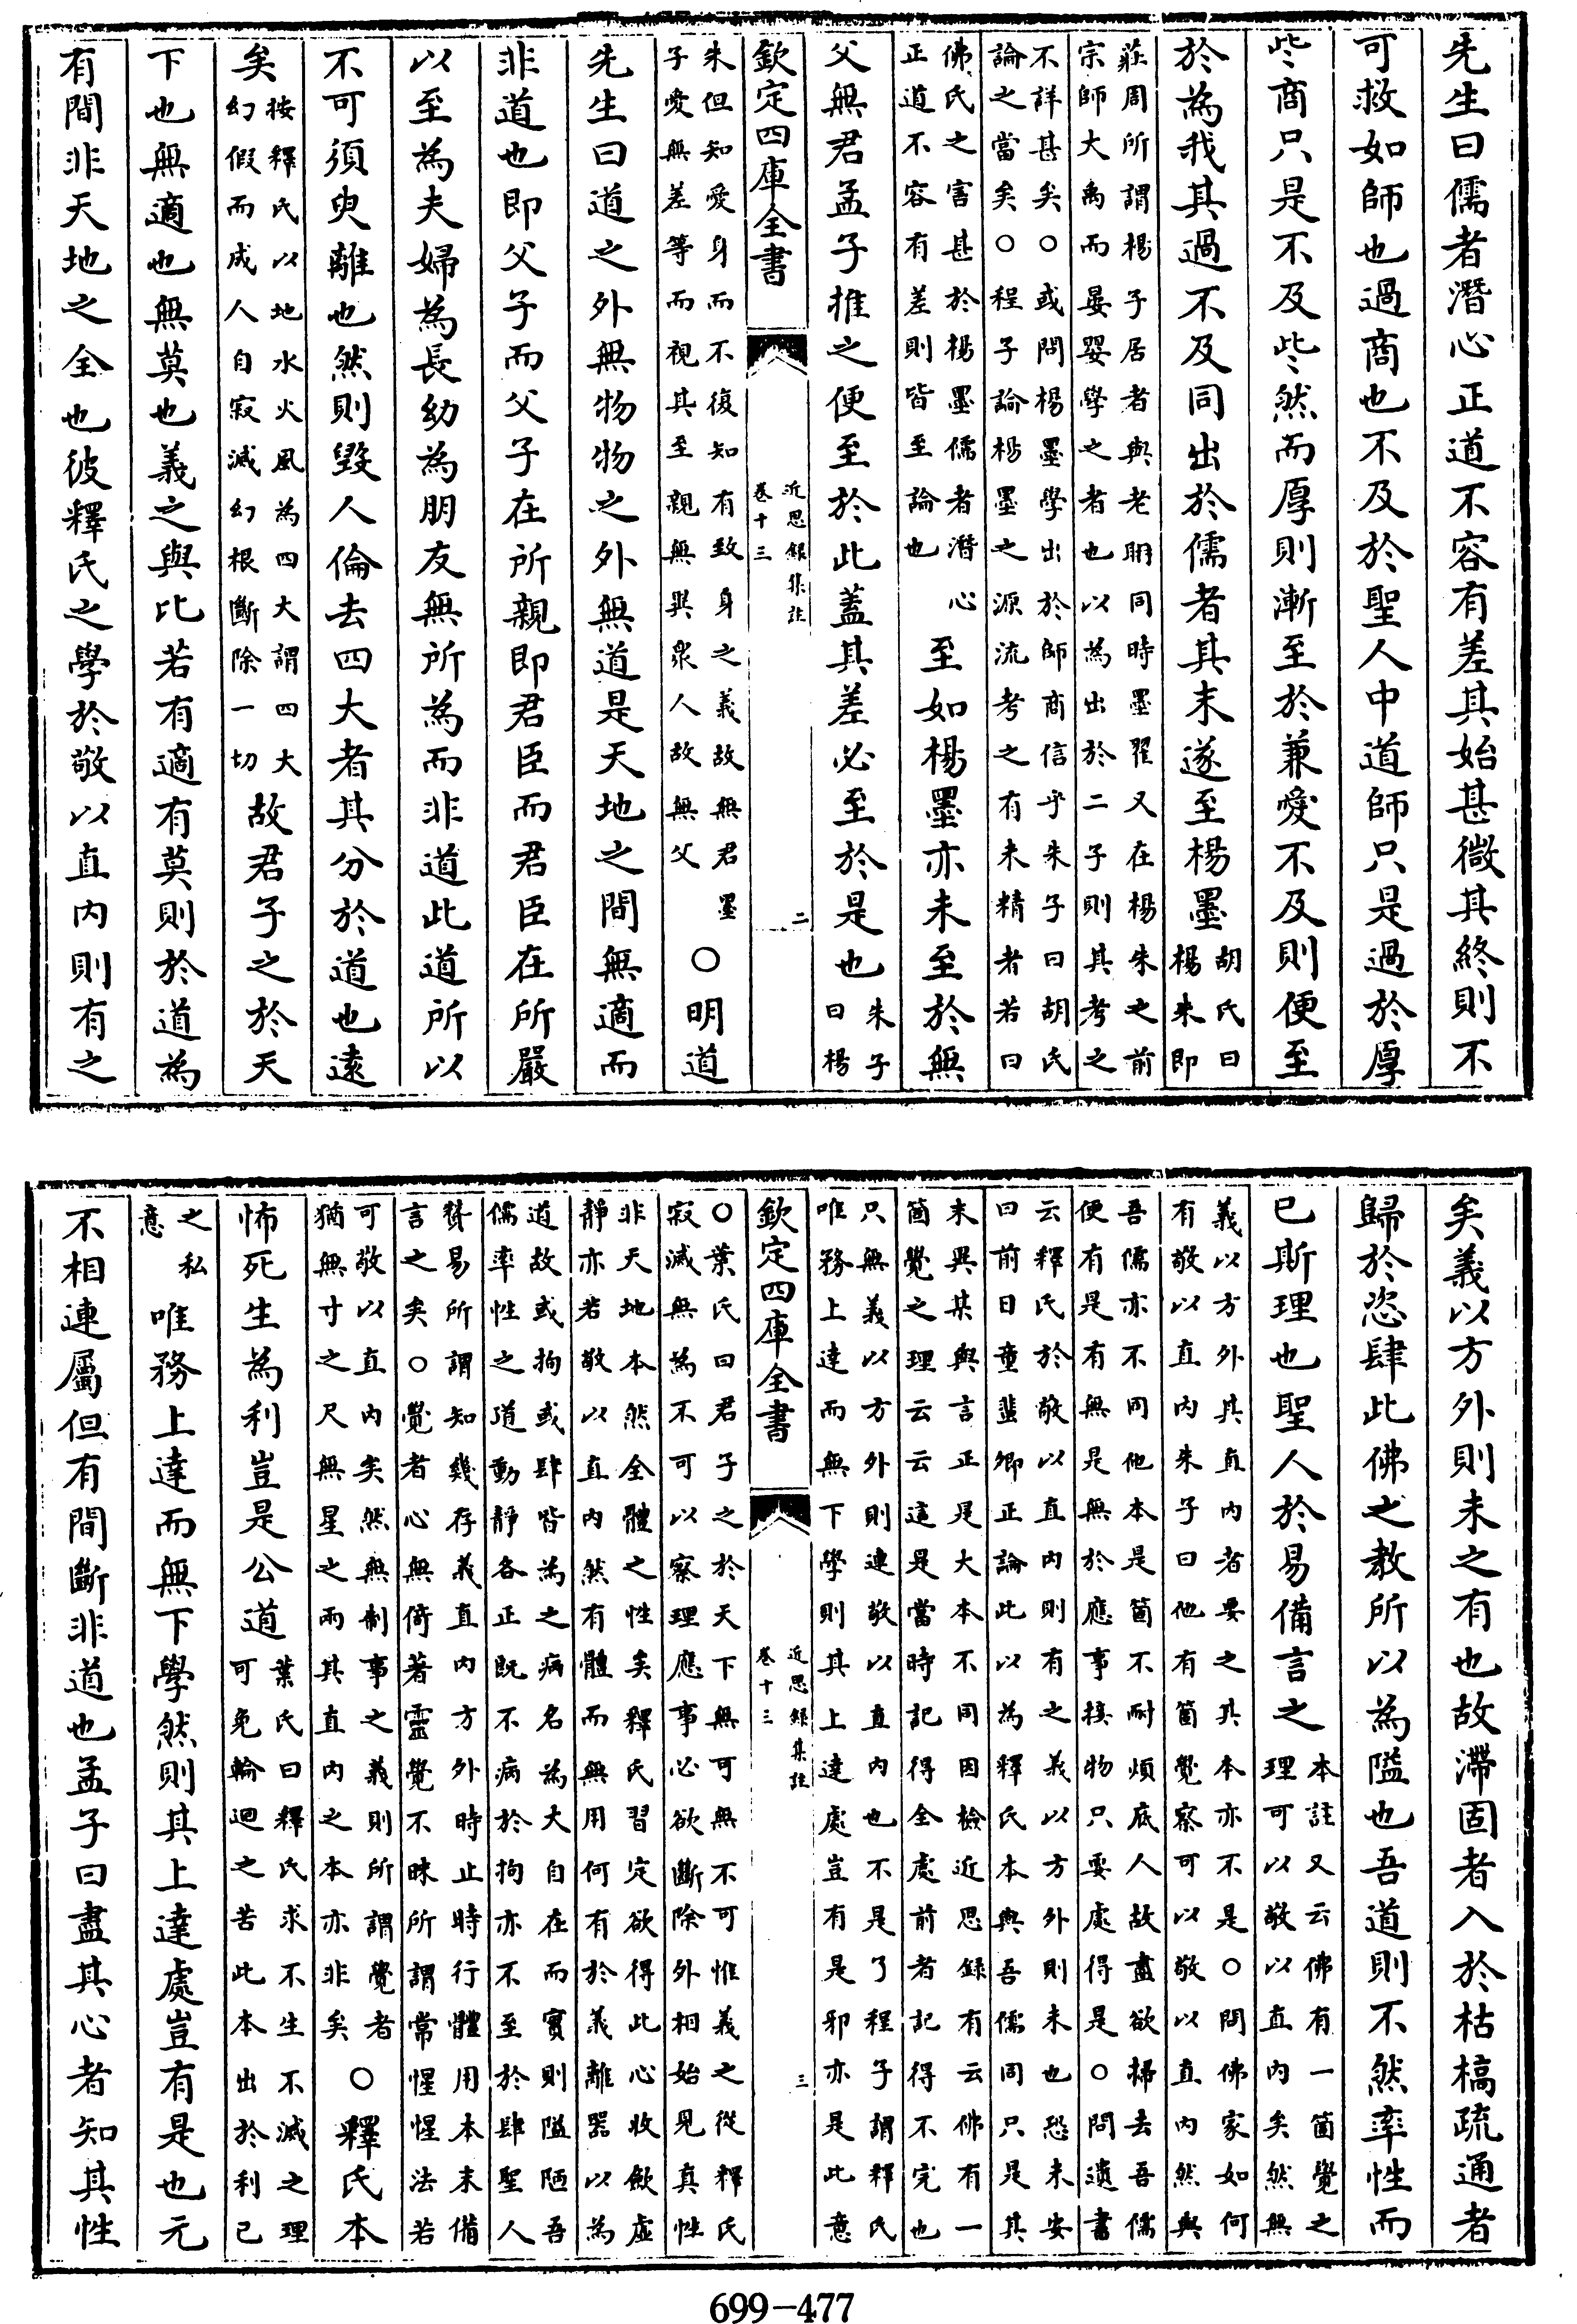 先生曰儒者潛心正道不容有差其始甚微其終則不
可救如師也過商也不及於聖人中道師只是過於厚
些商只是不及些然而厚則漸至於兼愛不及則便至
於為我其過不及同出於儒者其末遂至楊墨胡氏曰楊朱即
莊周所謂楊子居者與老耼同時墨翟又在楊朱之前
宗師大禹而晏嬰學之者也以為出於二子則其考之
不詳甚矣○或問楊墨學出於師商信乎朱子曰胡氏
論之當矣○程子論楊墨之源流考之有未精者若曰
佛氏之害甚於楊墨儒者潛心
正道不容有差則皆至論也
至如楊墨亦未至於無
父無君孟子推之便至於此蓋其差必至於是也朱子曰楊
欽定四庫全書
近思錄集註
卷十三
二
朱但知愛身而不復知有致身之義故無君墨
子愛無差等而視其至親無異衆人故無父
○明道
先生曰道之外無物物之外無道是天地之間無適而
非道也即父子而父子在所親即君臣而君臣在所嚴
以至為夫婦為長幼為朋友無所為而非道此道所以
不可須臾離也然則毀人倫去四大者其分於道也遠
矣按釋氏以地水火風為四大謂四大幻假而成人自寂滅幻根斷除一切故君子之於天
下也無適也無莫也義之與比若有適有莫則於道為
有間非天地之全也彼釋氏之學於敬以直內則有之
矣義以方外則未之有也故滯固者入於枯槁疏通者
歸於恣肆此佛之教所以為隘也吾道則不然率性而
已斯理也聖人於易備言之本註又云佛有一箇覺之理可以敬以直內矣然無
義以方外其直內者要之其本亦不是○問佛家如何
有敬以直內朱子曰他有箇覺察可以敬以直內然與
吾儒亦不同他本是箇不耐煩底人故盡欲掃去吾儒
便有是有無是無於應事接物只要處得是○問遺書
云釋氏於敬以直內則有之義以方外則未也恐未安
曰前日童蜚卿正論此以為釋氏本與吾儒同只是其
末異某與言正是大本不同因檢近思錄有云佛有一
箇覺之理云云這是當時記得全處前者記得不完也
只無義以方外則連敬以直內也不是了程子謂釋氏
唯務上達而無下學則其上達處豈有是邪亦是此意
欽定四庫全書
近思錄集註
卷十三
三
○葉氏曰君子之於天下無可無不可惟義之從釋氏
寂滅無為不可以察理應事必欲斷除外相始見真性
非天地本然全體之性矣釋氏習定欲得此心收斂虛
靜亦若敬以直內然有體而無用何有於義離器以為
道故或拘或肆皆為之病名為大自在而實則隘陋吾
儒率性之道動靜各正既不病於拘亦不至於肆聖人
贊易所謂知幾存義直內方外時止時行體用本末備
言之矣○覺者心無倚著靈覺不昧所謂常惺惺法若
可敬以直內矣然無制事之義則所謂覺者
猶無寸之尺無星之兩其直內之本亦非矣
○釋氏本
怖死生為利豈是公道葉氏曰釋氏求不生不滅之理可免輪迴之苦此本出於利己
之私意
唯務上達而無下學然則其上達處豈有是也元
不相連屬但有間斷非道也孟子曰盡其心者知其性
699-477